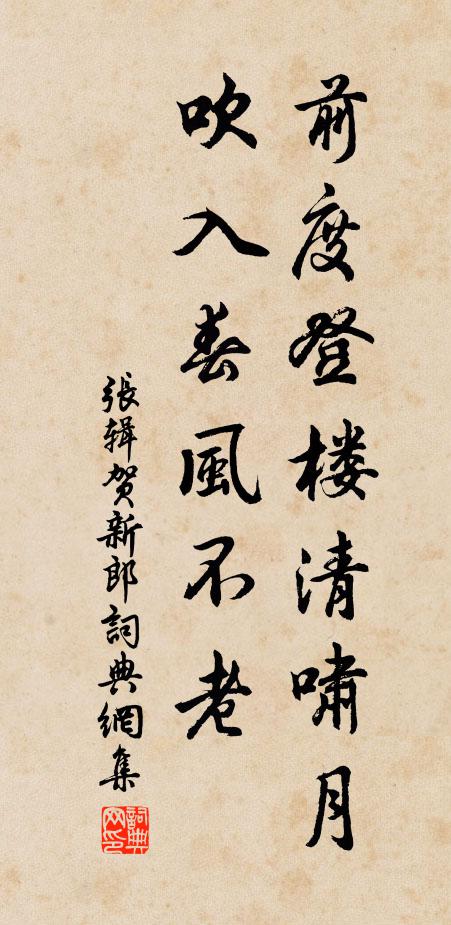 前度登楼清啸月
吹入春風不老
張辑贺新郎詞典網集
詞典网印